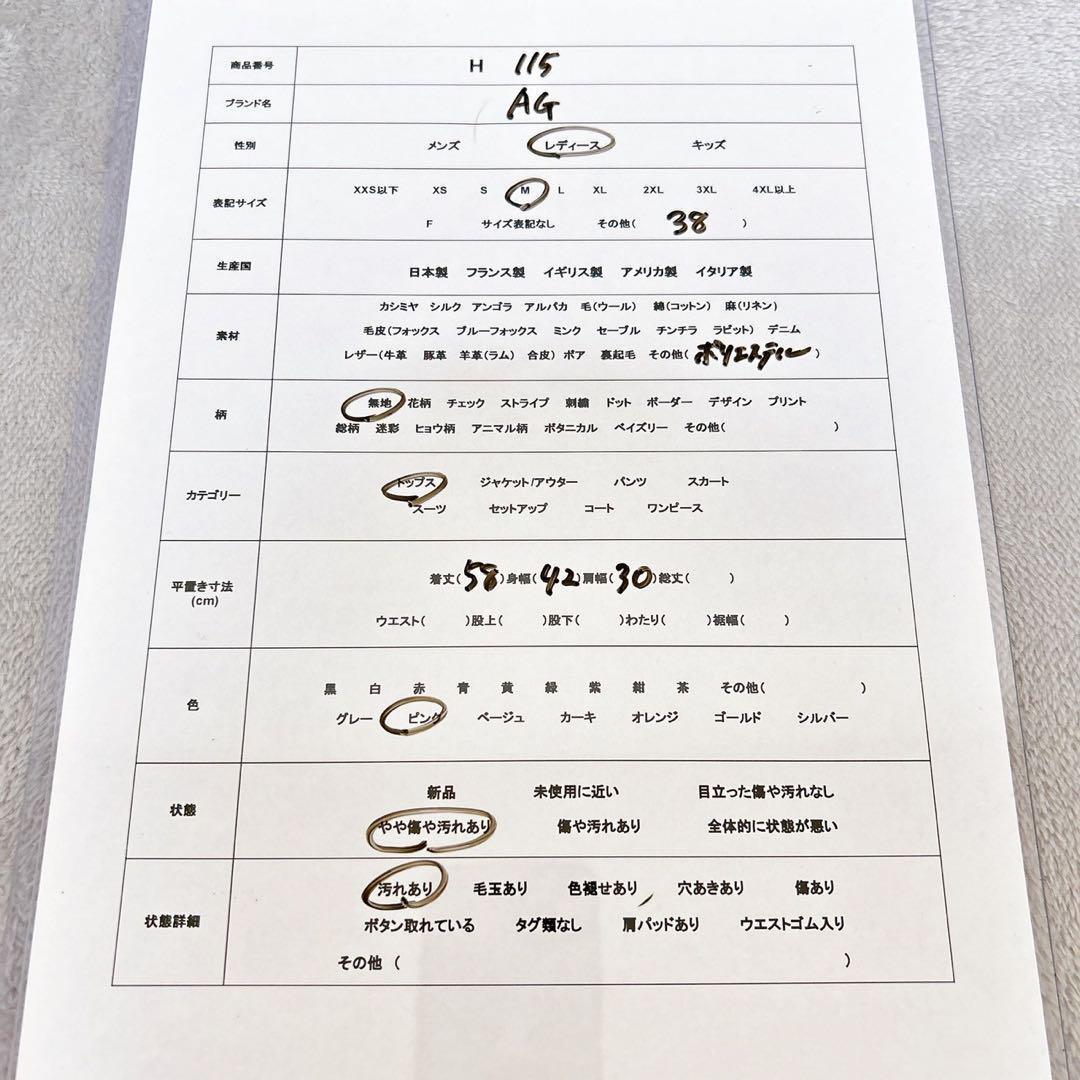 商品番号 H 115
ブランド名 AG
性別 メンズ レディース キッズ
表記サイズ
XXS以下 XS S M L XL 2XL 3XL 4XL以上
F サイズ表記なし その他( 38 )
生産国 日本製 フランス製 イギリス製 アメリカ製 イタリア製
素材
カシミヤ シルク アンゴラ アルパカ 毛(ウール) 綿(コットン) 麻(リネン)
毛皮(フォックス ブルーフォックス ミンク セーブル チンチラ ラビット) デニム
レザー(牛革 豚革 羊革(ラム) 合皮) ボア 裏起毛 その他( ポリエステル )
柄
無地 花柄 チェック ストライプ 刺繍 ドット ボーダー デザイン プリント
総柄 迷彩 ヒョウ柄 アニマル柄 ボタニカル ペイズリー その他( )
カテゴリー
トップス ジャケット/アウター パンツ スカート
スーツ セットアップ コート ワンピース
平置き寸法
(cm)
着丈( 58 )身幅( 42 )肩幅( 30 )総丈( )
ウエスト( )股上( )股下( )わたり( )裾幅( )
色
黒 白 赤 青 黄 緑 紫 紺 茶 その他( )
グレー ピンク ベージュ カーキ オレンジ ゴールド シルバー
状態
新品 未使用に近い 目立った傷や汚れなし
やや傷や汚れあり 傷や汚れあり 全体的に状態が悪い
状態詳細
汚れあり 毛玉あり 色褪せあり 穴あきあり 傷あり
ボタン取れている タグ類なし 肩パッドあり ウエストゴム入り
その他 ( )